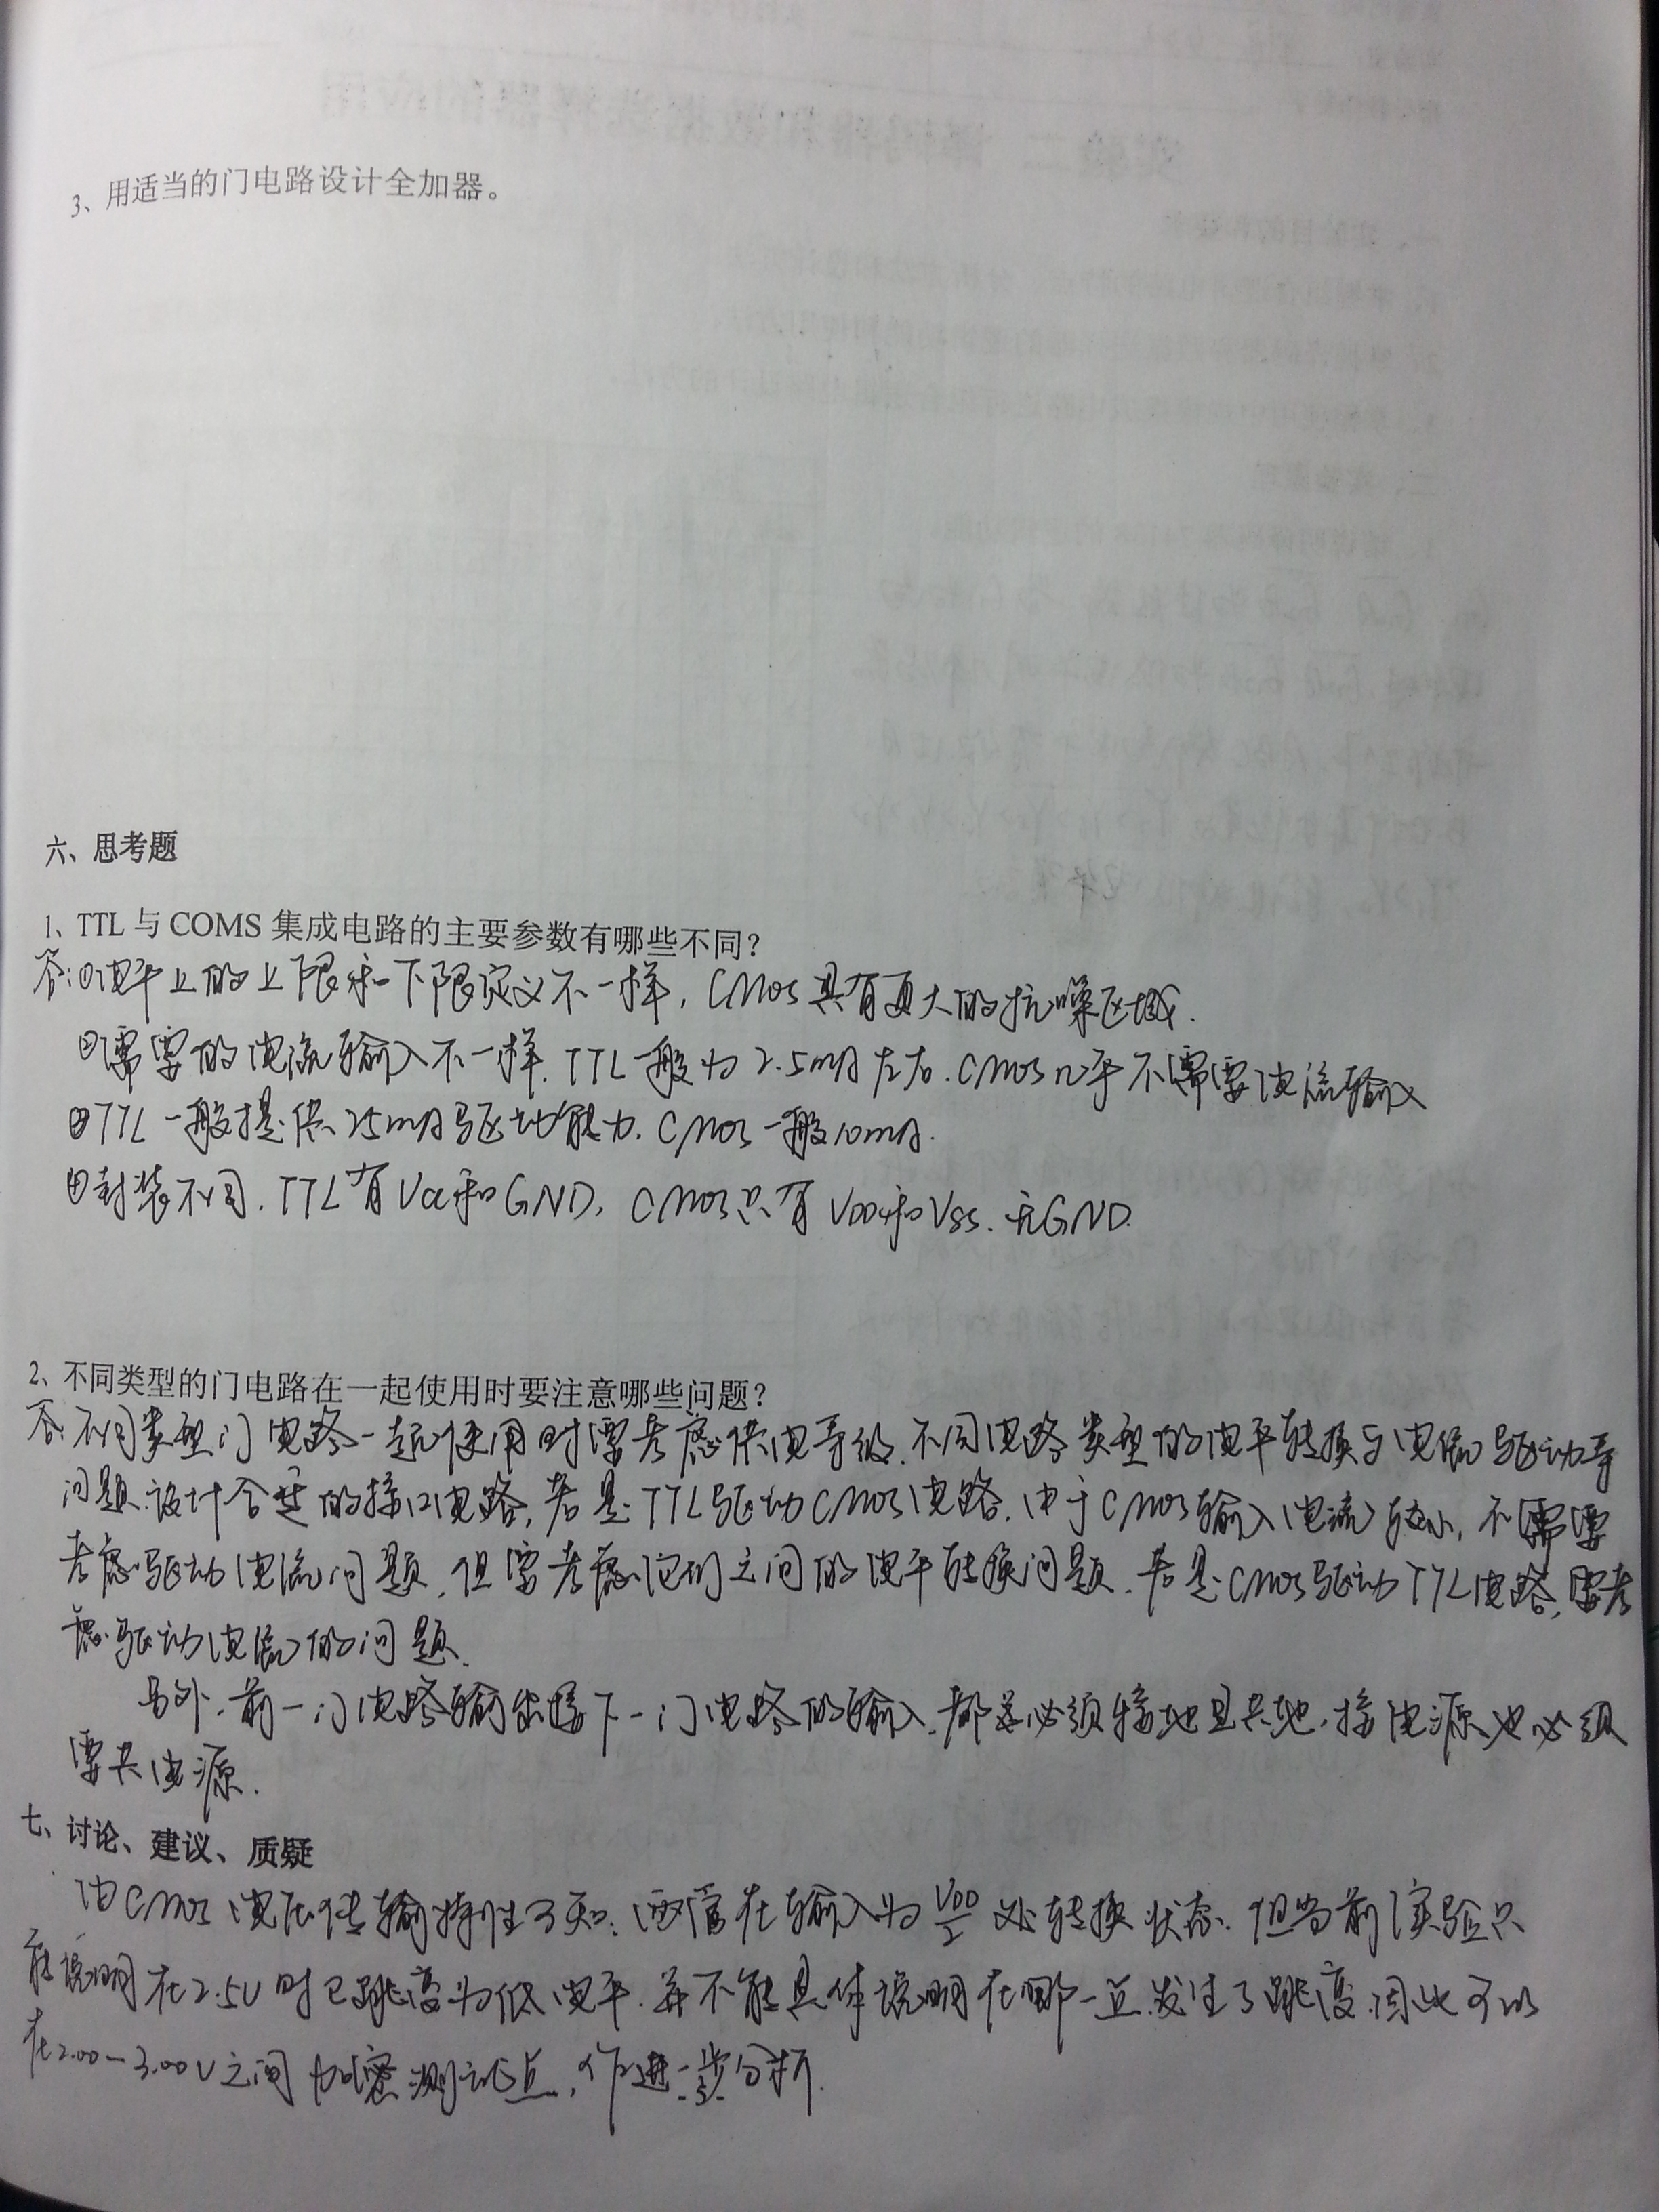 3、用适当的门电路设计全加器。
六、思考题
1、TTL 与 COMS 集成电路的主要参数有哪些不同？
答:①电平上的上限和下限定义不一样，CMOS具有更大的抗噪区域.
②需要的电流输入不一样.TTL一般为2.5mA左右.CMOS几乎不需要电流输入
③TTL一般提供25mA驱动能力.CMOS一般10mA.
④封装不同.TTL有Vcc和GND，CMOS只有VDD和VSS.无GND.
2、不同类型的门电路在一起使用时要注意哪些问题？
答:不同类型门电路一起使用时要考虑供电等级.不同电路类型的电平转换与电流驱动等
问题.设计合适的接口电路，若是TTL驱动CMOS电路.由于CMOS输入电流较小，不需要
考虑驱动电流问题，但要考虑它们之间的电平转换问题.若是CMOS驱动TTL电路，要考
虑驱动电流的问题.
另外.前一门电路输出接下一门电路的输入.都是必须接地且共地，接电源也必须
要共电源.
七、讨论、建议、质疑
由CMOS电压传输特性可知：两管在输入为VDD/2处转换状态.但当前实验只
能说明在2.5V时已跳变为低电平.并不能具体说明在哪一点发生了跳变.因此可以
在2.00-3.00V之间加密测试点，作进一步分析.